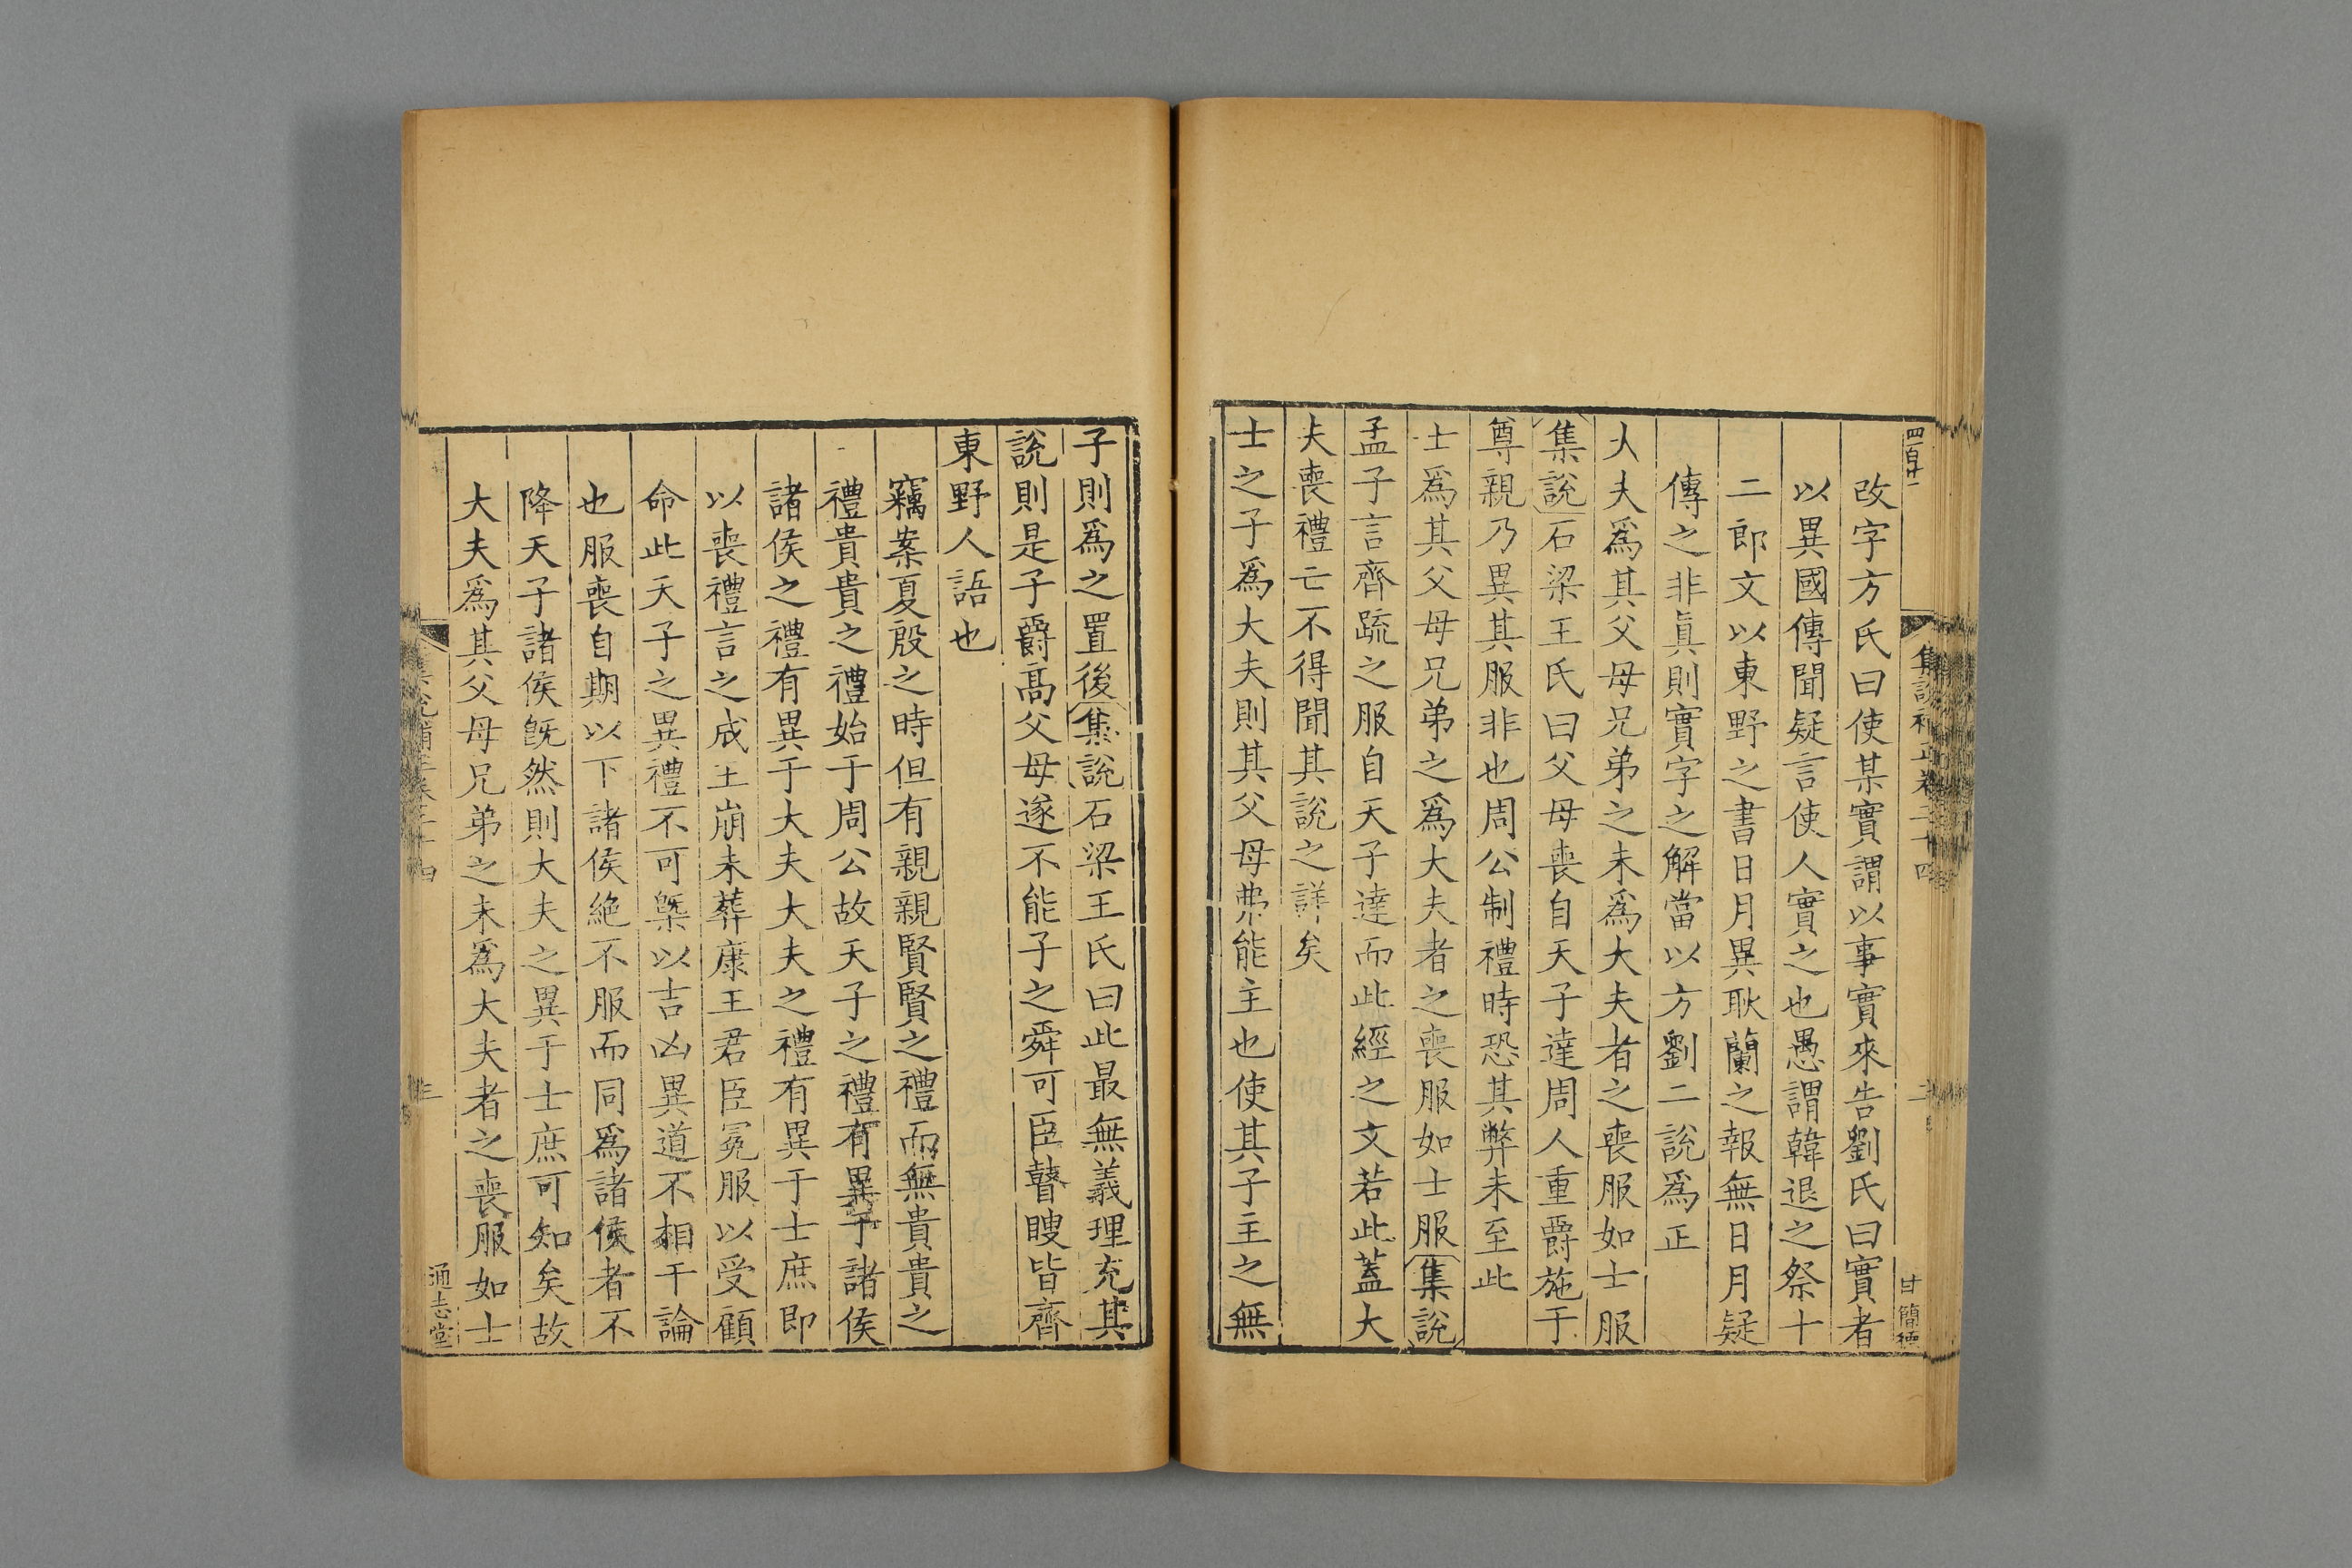 四百廿一
集說補正卷二十四
二
甘簡穮
改字方氏曰使某實謂以事實來告劉氏曰實者
以異國傳聞疑言使人實之也愚謂韓退之祭十
二郎文以東野之書日月異耿蘭之報無日月疑
傳之非眞則實字之解當以方劉二說爲正
大夫爲其父母兄弟之未爲大夫者之喪服如士服
集說石梁王氏曰父母喪自天子達周人重爵施于
尊親乃異其服非也周公制禮時恐其弊未至此
士爲其父母兄弟之爲大夫者之喪服如士服集說
孟子言齊疏之服自天子達而此經之文若此蓋大
夫喪禮亡不得聞其說之詳矣
士之子爲大夫則其父母弗能主也使其子主之無
子則爲之置後集說石梁王氏曰此最無義理充其
說則是子爵高父母遂不能子之舜可臣瞽瞍皆齊
東野人語也
竊案夏殷之時但有親親賢賢之禮而無貴貴之
禮貴貴之禮始于周公故天子之禮有異于諸侯
諸侯之禮有異于大夫大夫之禮有異于士庶即
以喪禮言之成王崩未葬康王君臣冕服以受顧
命此天子之異禮不可槩以吉凶異道不相干論
也服喪自期以下諸侯絶不服而同爲諸侯者不
降天子諸侯旣然則大夫之異于士庶可知矣故
大夫爲其父母兄弟之未爲大夫者之喪服如士
集說補正卷二十四
通志堂